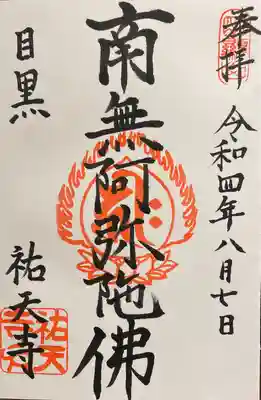 奉拝
令和四年八月七日
南無阿弥陀佛
目黒
祐天寺